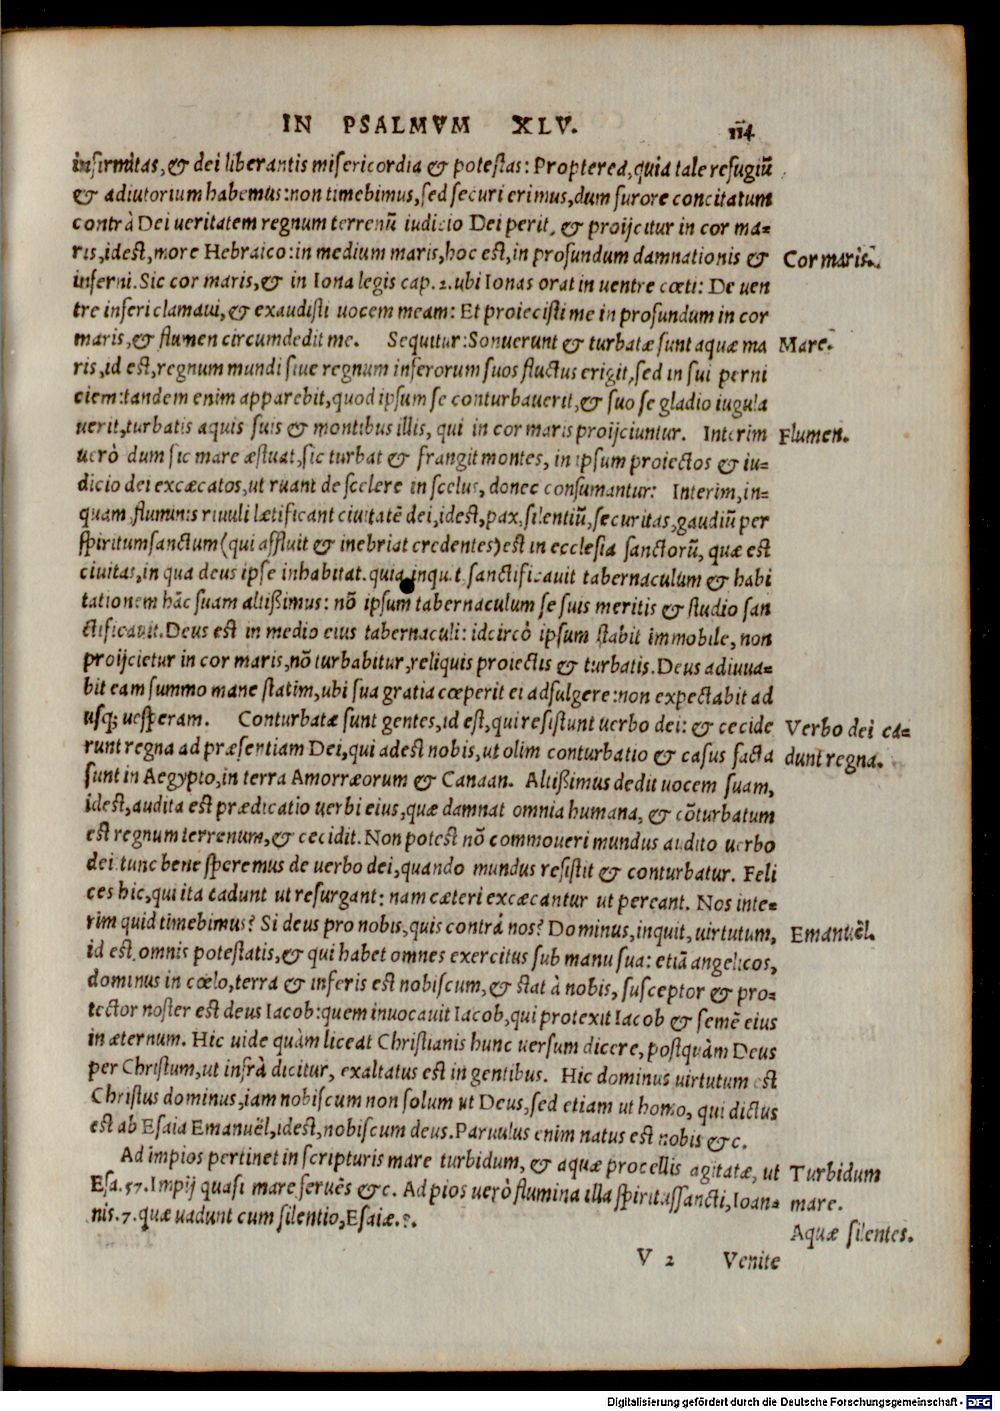 IN PSALMVM XLV. 114
infirmitas, & dei liberantis misericordia & potestas: Proptereà, quia tale refugiũ
& adiutorium habemus: non timebimus, sed securi erimus, dum furore concitatum
contrà Dei ueritatem regnum terrenũ iudicio Dei perit, & proijcitur in cor ma=
ris, idest, more Hebraico: in medium maris, hoc est, in profundum damnationis &
Cor maris.
inferni. Sic cor maris, & in Iona legis cap. 2. ubi Ionas orat in uentre cœti: De uen
tre inferi clamaui, & exaudisti uocem meam: Et proiecisti me in profundum in cor
maris, & flumen circumdedit me. Sequitur: Sonuerunt & turbatæ sunt aquæ ma
Mare.
ris, id est, regnum mundi siue regnum inferorum suos fluctus erigit, sed in sui perni
ciem: tandem enim apparebit, quod ipsum se conturbauerit, & suo se gladio iugula
uerit, turbatis aquis suis & montibus illis, qui in cor maris proijciuntur. Interim
Flumen.
uerò dum sic mare æstuat, sic turbat & frangit montes, in ipsum proiectos & iu=
dicio dei excæcatos, ut ruant de scelere in scelus, donec consumantur: Interim, in=
quam, fluminis riuuli lætificant ciuitatẽ dei, idest, pax, silentiũ, securitas, gaudiũ per
spiritumsanctum (qui affluit & inebriat credentes) est in ecclesia sanctorũ, quæ est
ciuitas, in qua deus ipse inhabitat. quia inquit sanctificauit tabernaculum & habi
tationem hãc suam altißimus: nõ ipsum tabernaculum se suis meritis & studio san
ctificauit. Deus est in medio eius tabernaculi: idcircò ipsum stabit immobile, non
proijcietur in cor maris, nõ turbabitur, reliquis proiectis & turbatis. Deus adiuua=
bit eam summo mane statim, ubi sua gratia cœperit ei adfulgere: non expectabit ad
usq; uesperam. Conturbatæ sunt gentes, id est, qui resistunt uerbo dei: & cecide
Verbo dei ca=
runt regna ad præsentiam Dei, qui adest nobis, ut olim conturbatio & casus facta
dunt regna.
sunt in Aegypto, in terra Amorræorum & Canaan. Altißimus dedit uocem suam,
idest, audita est prædicatio uerbi eius, quæ damnat omnia humana, & cõturbatum
est regnum terrenum, & cecidit. Non potest nõ commoueri mundus audito uerbo
dei: tunc bene speremus de uerbo dei, quando mundus resistit & conturbatur. Feli
ces hic, qui ita cadunt ut resurgant: nam cæteri excæcantur ut pereant. Nos inte=
rim quid timebimus? Si deus pro nobis, quis contrà nos? Dominus, inquit, uirtutum,
Emanuël.
id est, omnis potestatis, & qui habet omnes exercitus sub manu sua: etiã angelicos,
dominus in cœlo, terra & inferis est nobiscum, & stat à nobis, susceptor & pro=
tector noster est deus Iacob: quem inuocauit Iacob, qui protexit Iacob & semẽ eius
in æternum. Hic uide quàm liceat Christianis hunc uersum dicere, postquàm Deus
per Christum, ut infrà dicitur, exaltatus est in gentibus. Hic dominus uirtutum est
Christus dominus, iam nobiscum non solum ut Deus, sed etiam ut homo, qui dictus
est ab Esaia Emanuël, idest, nobiscum deus. Paruulus enim natus est nobis &c.
Ad impios pertinet in scripturis mare turbidum, & aquæ procellis agitatæ, ut
Turbidum
Esa. 57. Impij quasi mare feruẽs &c. Ad pios uerò flumina illa spiritussancti, Ioan=
mare.
nis. 7. quæ uadunt cum silentio, Esaiæ.
Aquæ silentes.
V 2 Venite
Digitalisierung gefördert durch die Deutsche Forschungsgemeinschaft - DFG